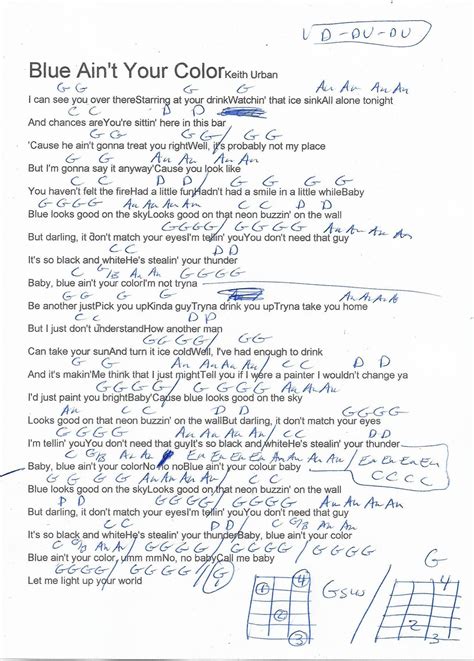 V D-DU-DU
Blue Ain't Your Color Keith Urban
G G G G Am Am Am Am
I can see you over thereStarring at your drinkWatchin' that ice sinkAll alone tonight
C C D D
And chances areYou're sittin' here in this bar
G G G G / G G
'Cause he ain't gonna treat you rightWell, it's probably not my place
G G Am Am Am Am
But I'm gonna say it anyway'Cause you look like
C C D D / G G G G
You haven't felt the fireHad a little funHadn't had a smile in a little whileBaby
G G G G Am Am Am Am C C D D
Blue looks good on the skyLooks good on that neon buzzin' on the wall
G G G G / G G G G Am Am Am Am
But darling, it don't match your eyesI'm tellin' youYou don't need that guy
C C D D
It's so black and whiteHe's stealin' your thunder
C G/B Am Am
Baby, blue ain't your colorI'm not tryna
G G G G Am Am Am Am
Be another justPick you upKinda guyTryna drink you upTryna take you home
C C D D
But I just don't understandHow another man
G G G G / G G
Can take your sunAnd turn it ice coldWell, I've had enough to drink
G G Am Am Am Am C C D D
And it's makin'Me think that I just mightTell you if I were a painter I wouldn't change ya
G G G G / G G G G Am Am Am
I'd just paint you brightBaby'Cause blue looks good on the sky
Am C C D D G G G G
Looks good on that neon buzzin' on the wallBut darling, it don't match your eyes
G G G G Am Am Am Am / C C D D
I'm tellin' youYou don't need that guyIt's so black and whiteHe's stealin' your thunder
C G/B Am Am Em Em Em Em Am Am Am Am / Em Em Em Em
Baby, blue ain't your colorNo no noBlue ain't your colour baby
C C C C
G G G G Am Am Am Am C C
Blue looks good on the skyLooks good on that neon buzzin' on the wall
D D G G G G / G G G G Am Am Am Am
But darling, it don't match your eyesI'm tellin' youYou don't need that guy
C C D D C G/B Am Am
It's so black and whiteHe's stealin' your thunderBaby, blue ain't your color
C G/B Am Am / G G G G / G G G G
Blue ain't your color, umm mmNo, no babyCall me baby
G G G G / G G G G / G
Let me light up your world
G
4
1
2
3
GSW
4
2
3